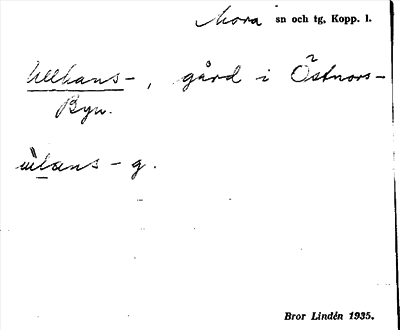 Mora sn och tg, Kopp. l.
Ullhans-, gård i Östnors-
Byn.
ùlans-g.
Bror Lindén 1935.